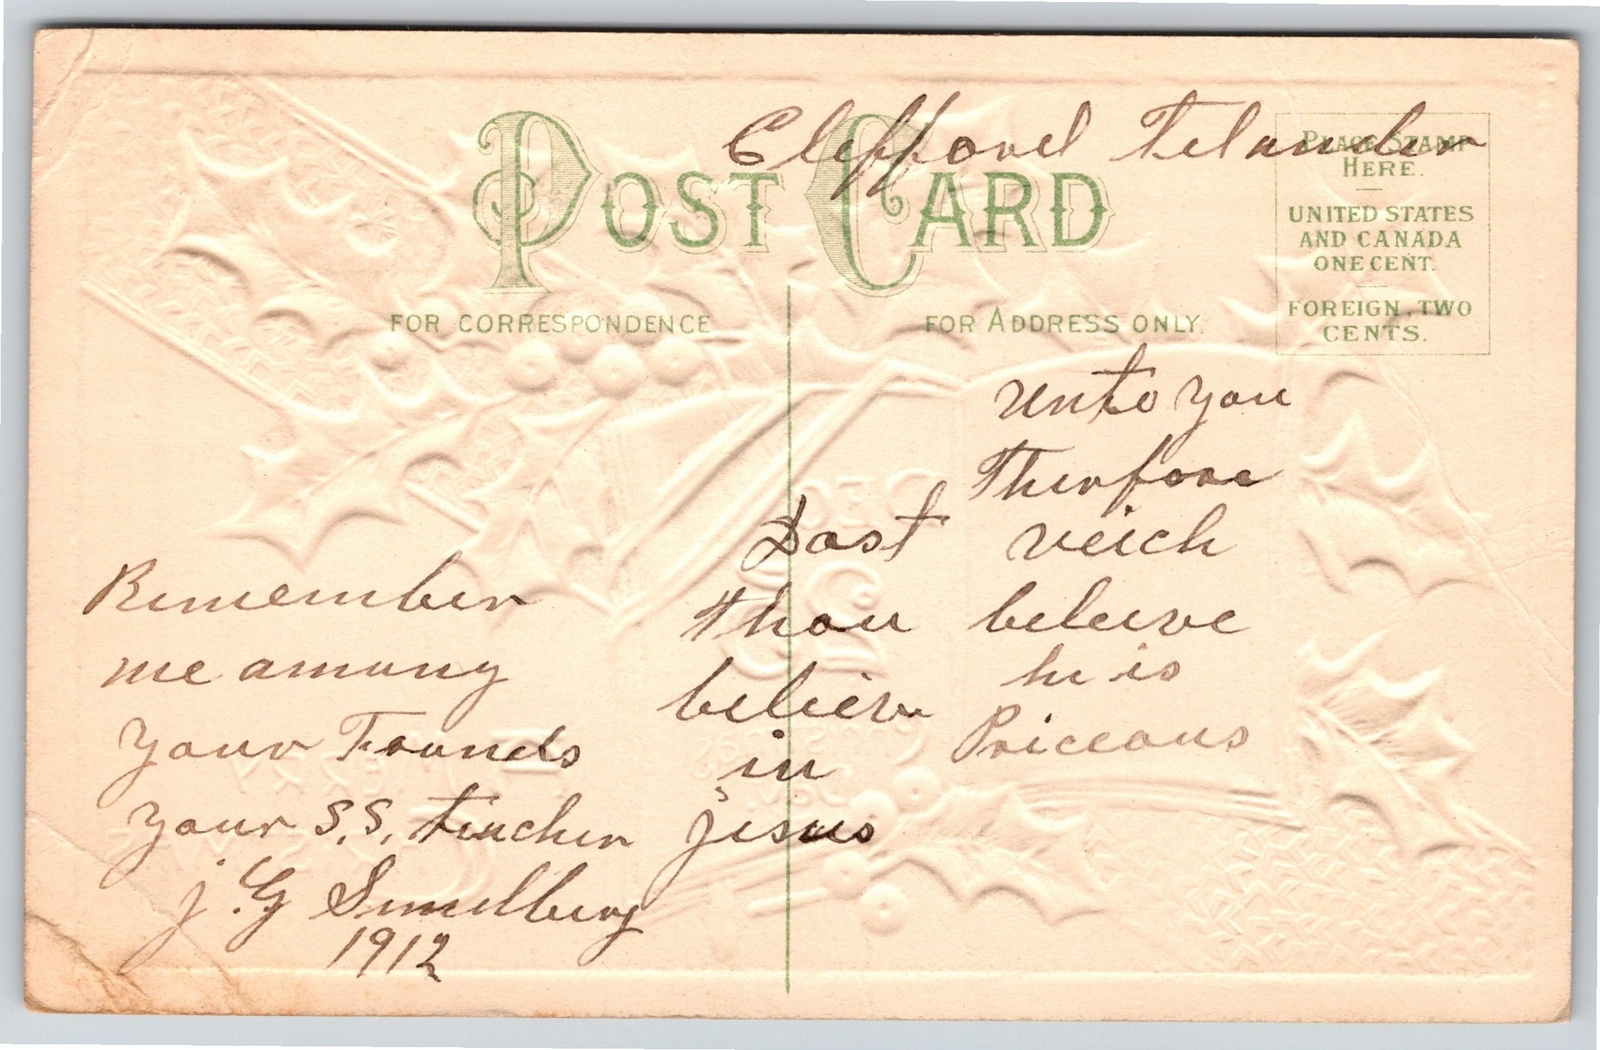 Clifford Telander
POST CARD
PLACE STAMP
HERE.
UNITED STATES
AND CANADA
ONE CENT.
FOREIGN, TWO
CENTS.
FOR CORRESPONDENCE
FOR ADDRESS ONLY.
Remember
me among
your Founds
your S.S. teacher
J. G
1912
Dost
thou
believe
in
Jesus
Unto you
Therfore
veich
beleeve
he is
Priceous
DEC
25